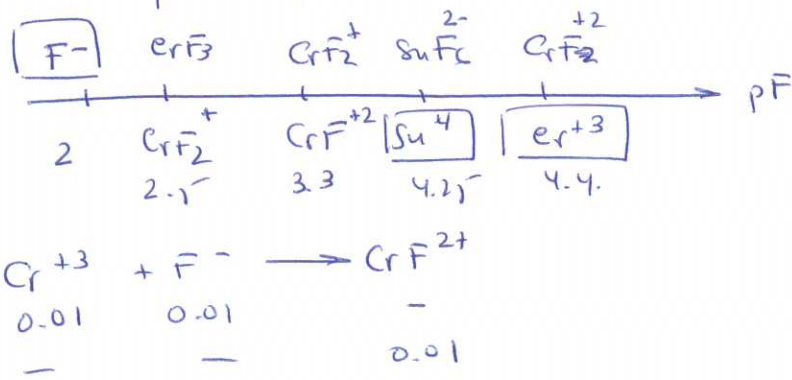 F⁻ CrF₃ CrF₂⁺ SnF₆²⁻ CrF₂⁺²
pF
2 CrF₂⁺ CrF⁺² Sn⁴ Cr⁺³
2.5 3.3 4.25 4.4.
Cr⁺³ + F⁻ → CrF²⁺
0.01 0.01 –
– – 0.01